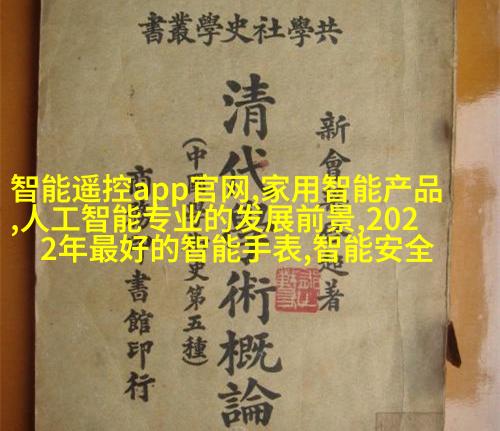 共學社史學叢書
新會著
清代術概論
(中史第五種)
書館印行
智能遥控app官网,家用智能产品
,人工智能专业的发展前景,202
2年最好的智能手表,智能安全